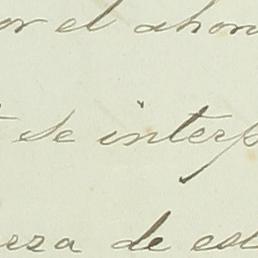 or el ahor
se interp
eza de est